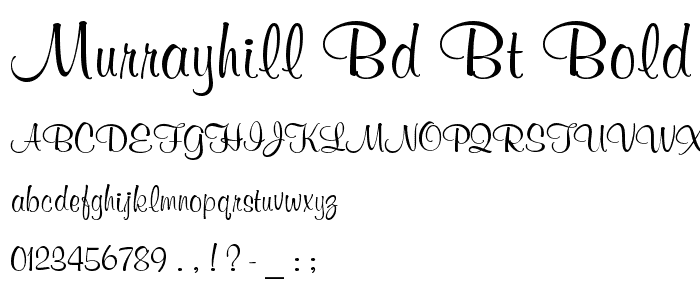 Murrayhill Bd Bt Bold
ABCDEFGHIJKLMNOPQRSTUVWX
abcdefghijklmnopqrstuvwxyz
0123456789 ., !? - _ : ;